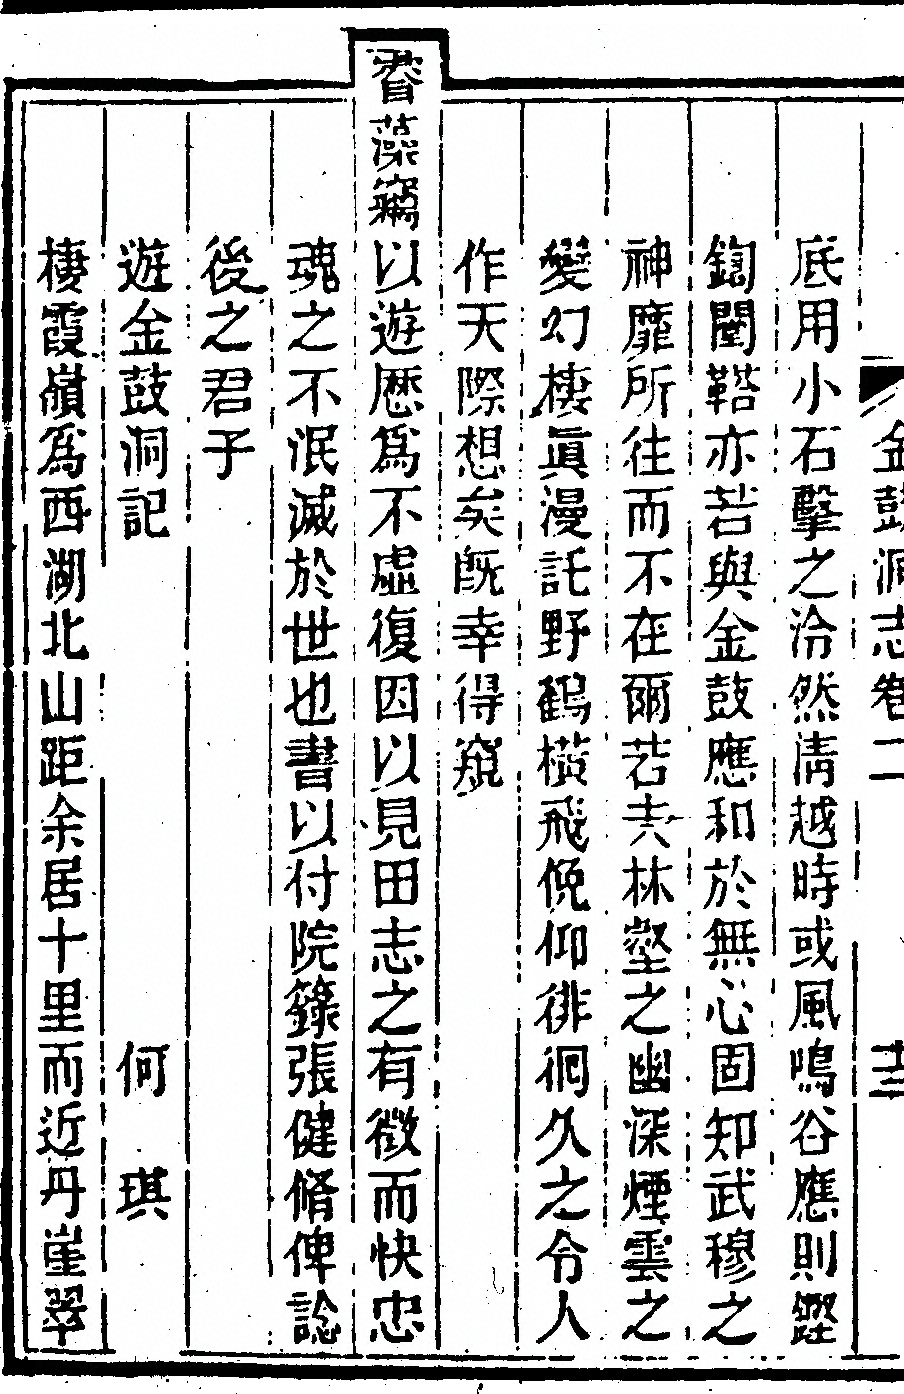 金鼓洞志卷二 十三
底用小石擊之泠然淸越時或風鳴谷應則鏗
鍧闛鞳亦若與金鼓應和於無心固知武穆之
神靡所往而不在爾若夫林壑之幽深煙雲之
變幻棲眞漫託野鶴橫飛俛仰徘徊久之令人
作天際想矣旣幸得窺
睿藻竊以遊歷爲不虛復因以見田志之有徵而快忠
魂之不泯滅於世也書以付院籙張健脩俾諗
後之君子
遊金鼓洞記 何琪
棲霞嶺爲西湖北山距余居十里而近丹崖翠